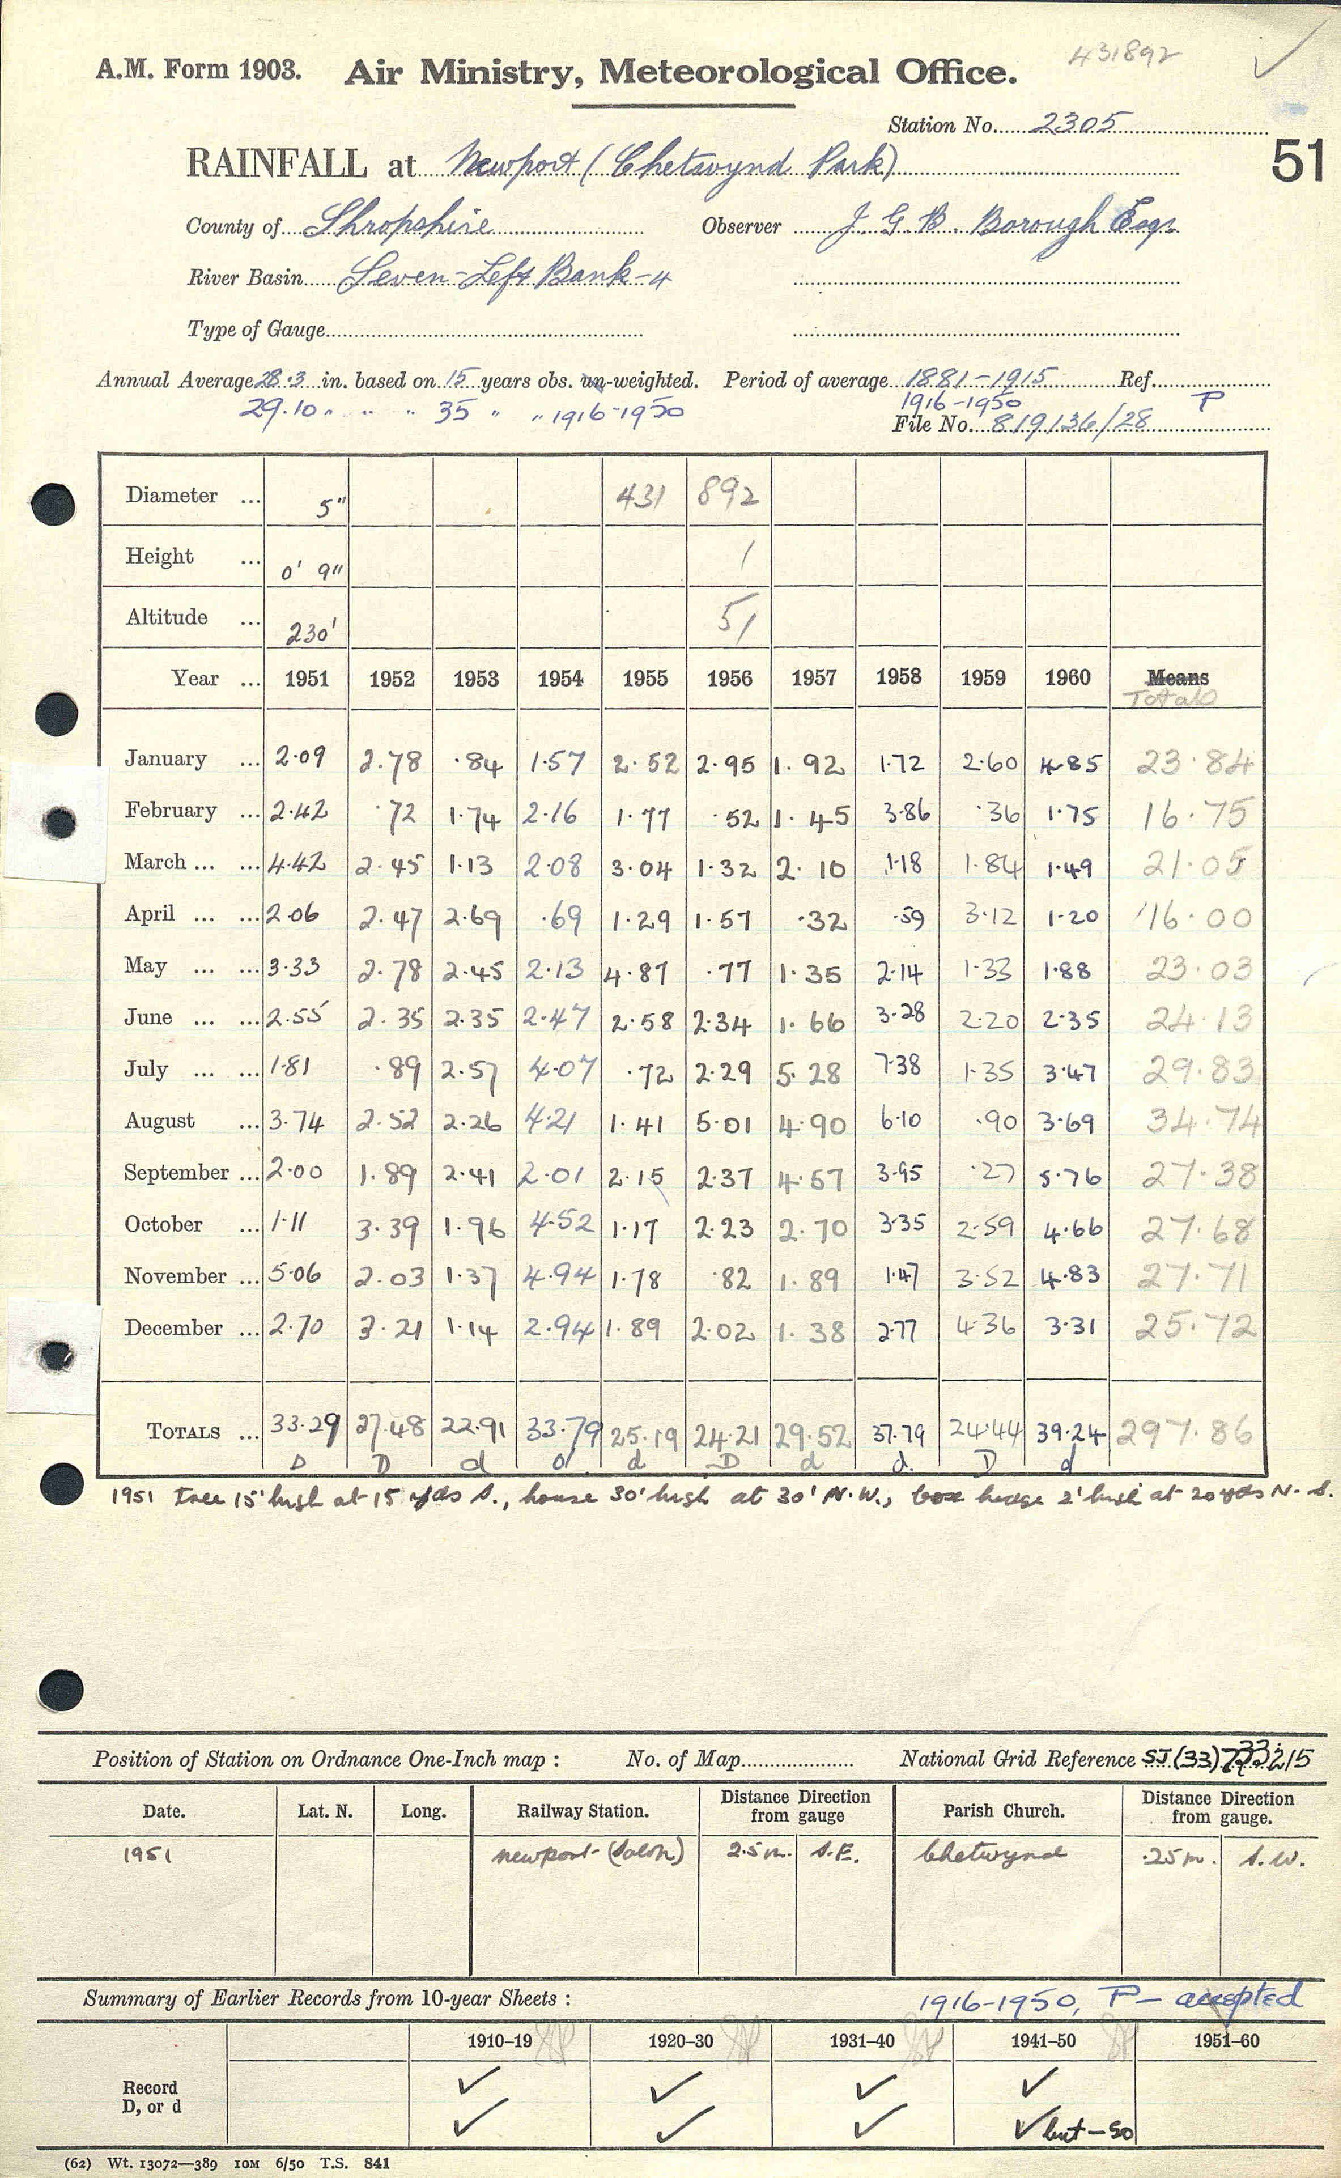 431892
A.M. Form 1903. Air Ministry, Meteorological Office.
Station No. 2305
51
RAINFALL at Newport (Chetwynd Park)
County of Shropshire Observer J. G. B. Borough Esq.
River Basin Seven-Left Bank-4
Type of Gauge
Annual Average 28.3 in. based on 15 years obs. un-weighted. Period of average 1881-1915 Ref.
29.10 " " " 35 " " 1916-1950 1916-1950 P
File No. 819136/28
Diameter ... 5" 431 892
Height ... 0' 9" 1
Altitude ... 230' 51
Year ... 1951 1952 1953 1954 1955 1956 1957 1958 1959 1960 Means
Totals
January ... 2.09 2.78 .84 1.57 2.52 2.95 1.92 1.72 2.60 4.85 23.84
February ... 2.42 .72 1.74 2.16 1.77 .52 1.45 3.86 .36 1.75 16.75
March ... ... 4.42 2.45 1.13 2.08 3.04 1.32 2.10 1.18 1.84 1.49 21.05
April ... ... 2.06 2.47 2.69 .69 1.29 1.57 .32 .59 3.12 1.20 16.00
May ... ... 3.33 2.78 2.45 2.13 4.87 .77 1.35 2.14 1.33 1.88 23.03
June ... ... 2.55 2.35 2.35 2.47 2.58 2.34 1.66 3.28 2.20 2.35 24.13
July ... ... 1.81 .89 2.57 4.07 .72 2.29 5.28 7.38 1.35 3.47 29.83
August ... 3.74 2.52 2.26 4.21 1.41 5.01 4.90 6.10 .90 3.69 34.74
September ... 2.00 1.89 2.41 2.01 2.15 2.37 4.57 3.95 .27 5.76 27.38
October ... 1.11 3.39 1.96 4.52 1.17 2.23 2.70 3.35 2.59 4.66 27.68
November ... 5.06 2.03 1.37 4.94 1.78 .82 1.89 1.47 3.52 4.83 27.71
December ... 2.70 3.21 1.14 2.94 1.89 2.02 1.38 2.77 4.36 3.31 25.72
TOTALS ... 33.29 27.48 22.91 33.79 25.19 24.21 29.52 37.79 24.44 39.24 297.86
D D d d d D d d D d
1951 tree 15' high at 15 yds S., house 30' high at 30' N.W., box hedge 2' high at 20 yds N.-S.
Position of Station on Ordnance One-Inch map : No. of Map National Grid Reference SJ (33) 733 215
Date. Lat. N. Long. Railway Station. Distance Direction from gauge Parish Church. Distance Direction from gauge.
1951 Newport (Salop) 2.5 m. S.E. Chetwynd .25 m. S.W.
Summary of Earlier Records from 10-year Sheets : 1916-1950, P - accepted
1910–19 1920–30 1931–40 1941–50 1951–60
Record
D, or d
but - 50
(62) Wt. 13072—389 10M 6/50 T.S. 841